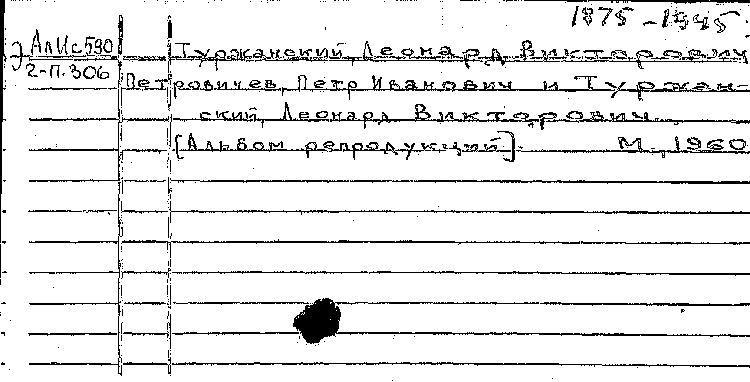 1875-1945
Э АлИс590 Туржанский, Леонард Викторович
2-П.306 Петровичев, Петр Иванович и Туржан-
ский, Леонард Викторович.
[Альбом репродукций]. М., 1960